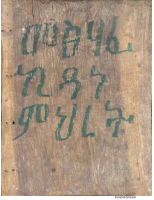 መፅሃፈ
ኪዳነ
ምህረት